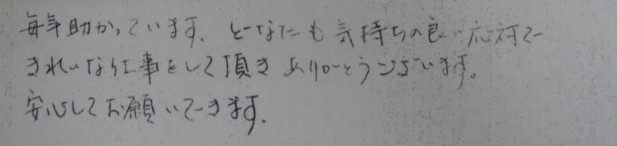 毎年助かっています。どなたも気持ちの良い応対で
きれいな仕事をして頂きありがとうございます。
安心してお願いできます。